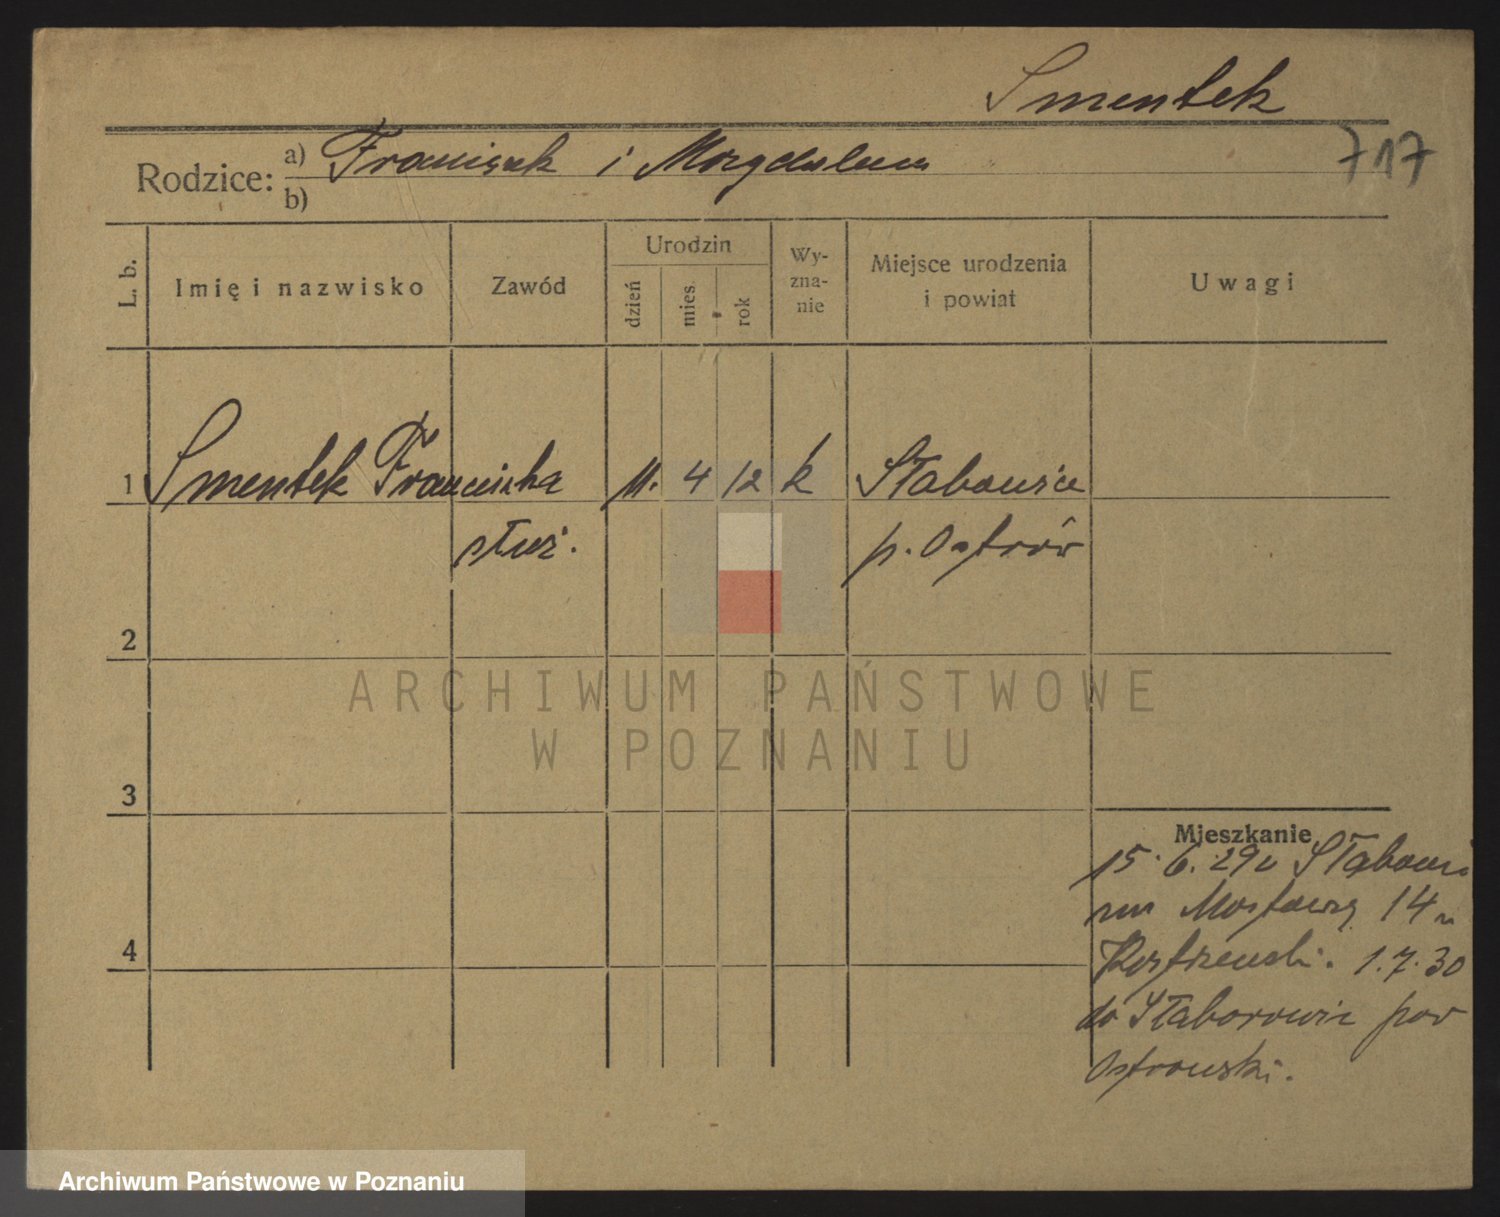 Smentek
717
Rodzice: a) Franciszek i Magdalena
b)
L. b.
Imię i nazwisko
Zawód
Urodzin
dzień
mies.
rok
Wy-
zna-
nie
Miejsce urodzenia
i powiat
Uwagi
1 Smentek Franciszka 11. 4 12 k Słaborowice
służ. p. Ostrów
2
3
4
Mieszkanie
15. 6. 29 Słaborowi
14
Kostrzewski. 1.7.30
do Słaborowic pow
Ostrowski.
ARCHIWUM PAŃSTWOWE
W POZNANIU
Archiwum Państwowe w Poznaniu